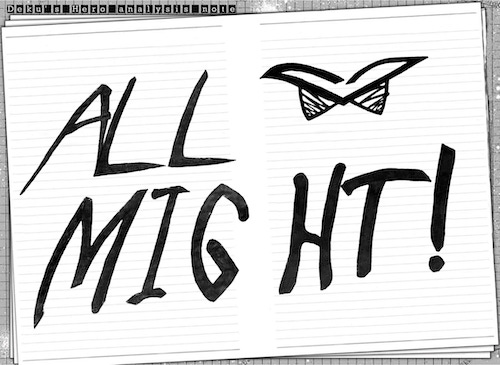 Deku's Hero analysis note
ALL
MIGHT!